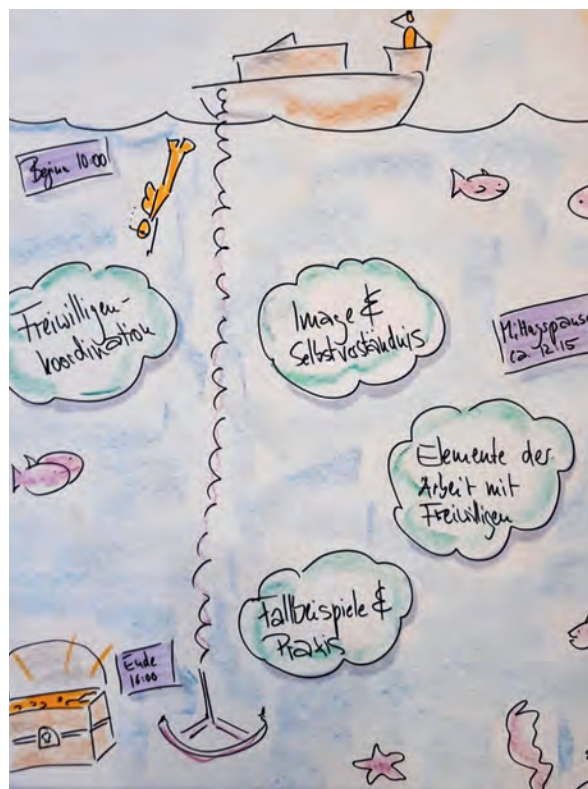 Beginn 10:00
Freiwilligen-
koordination
Image &
Selbstverständnis
Mittagspause
ca. 12:15
Elemente der
Arbeit mit
Freiwilligen
Fallbeispiele &
Praxis
Ende
16:00